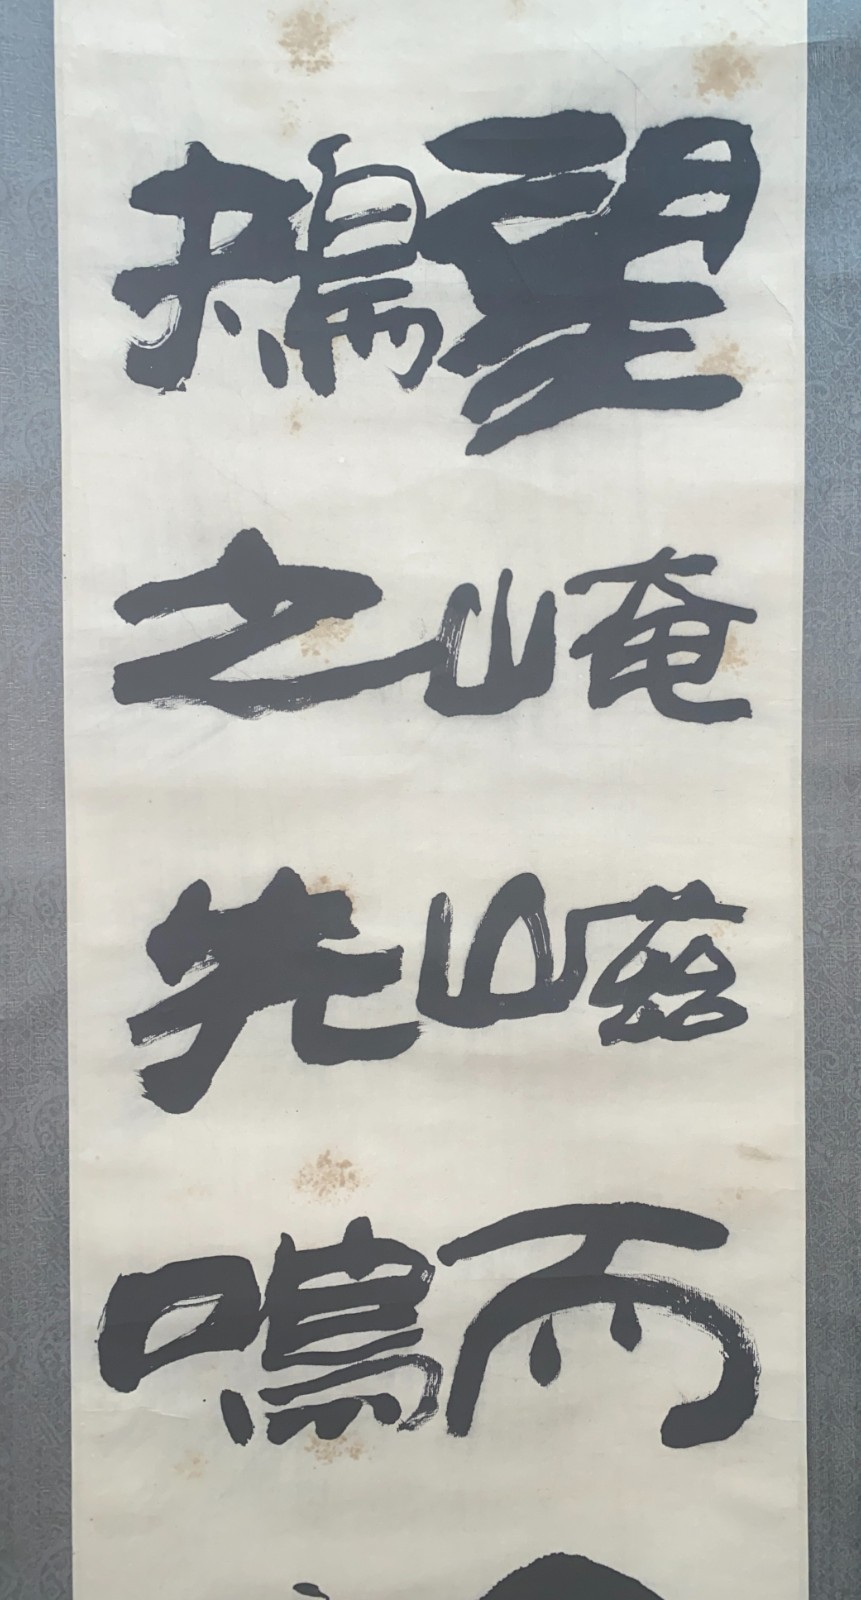 望崦嵫而
鴂之先鳴